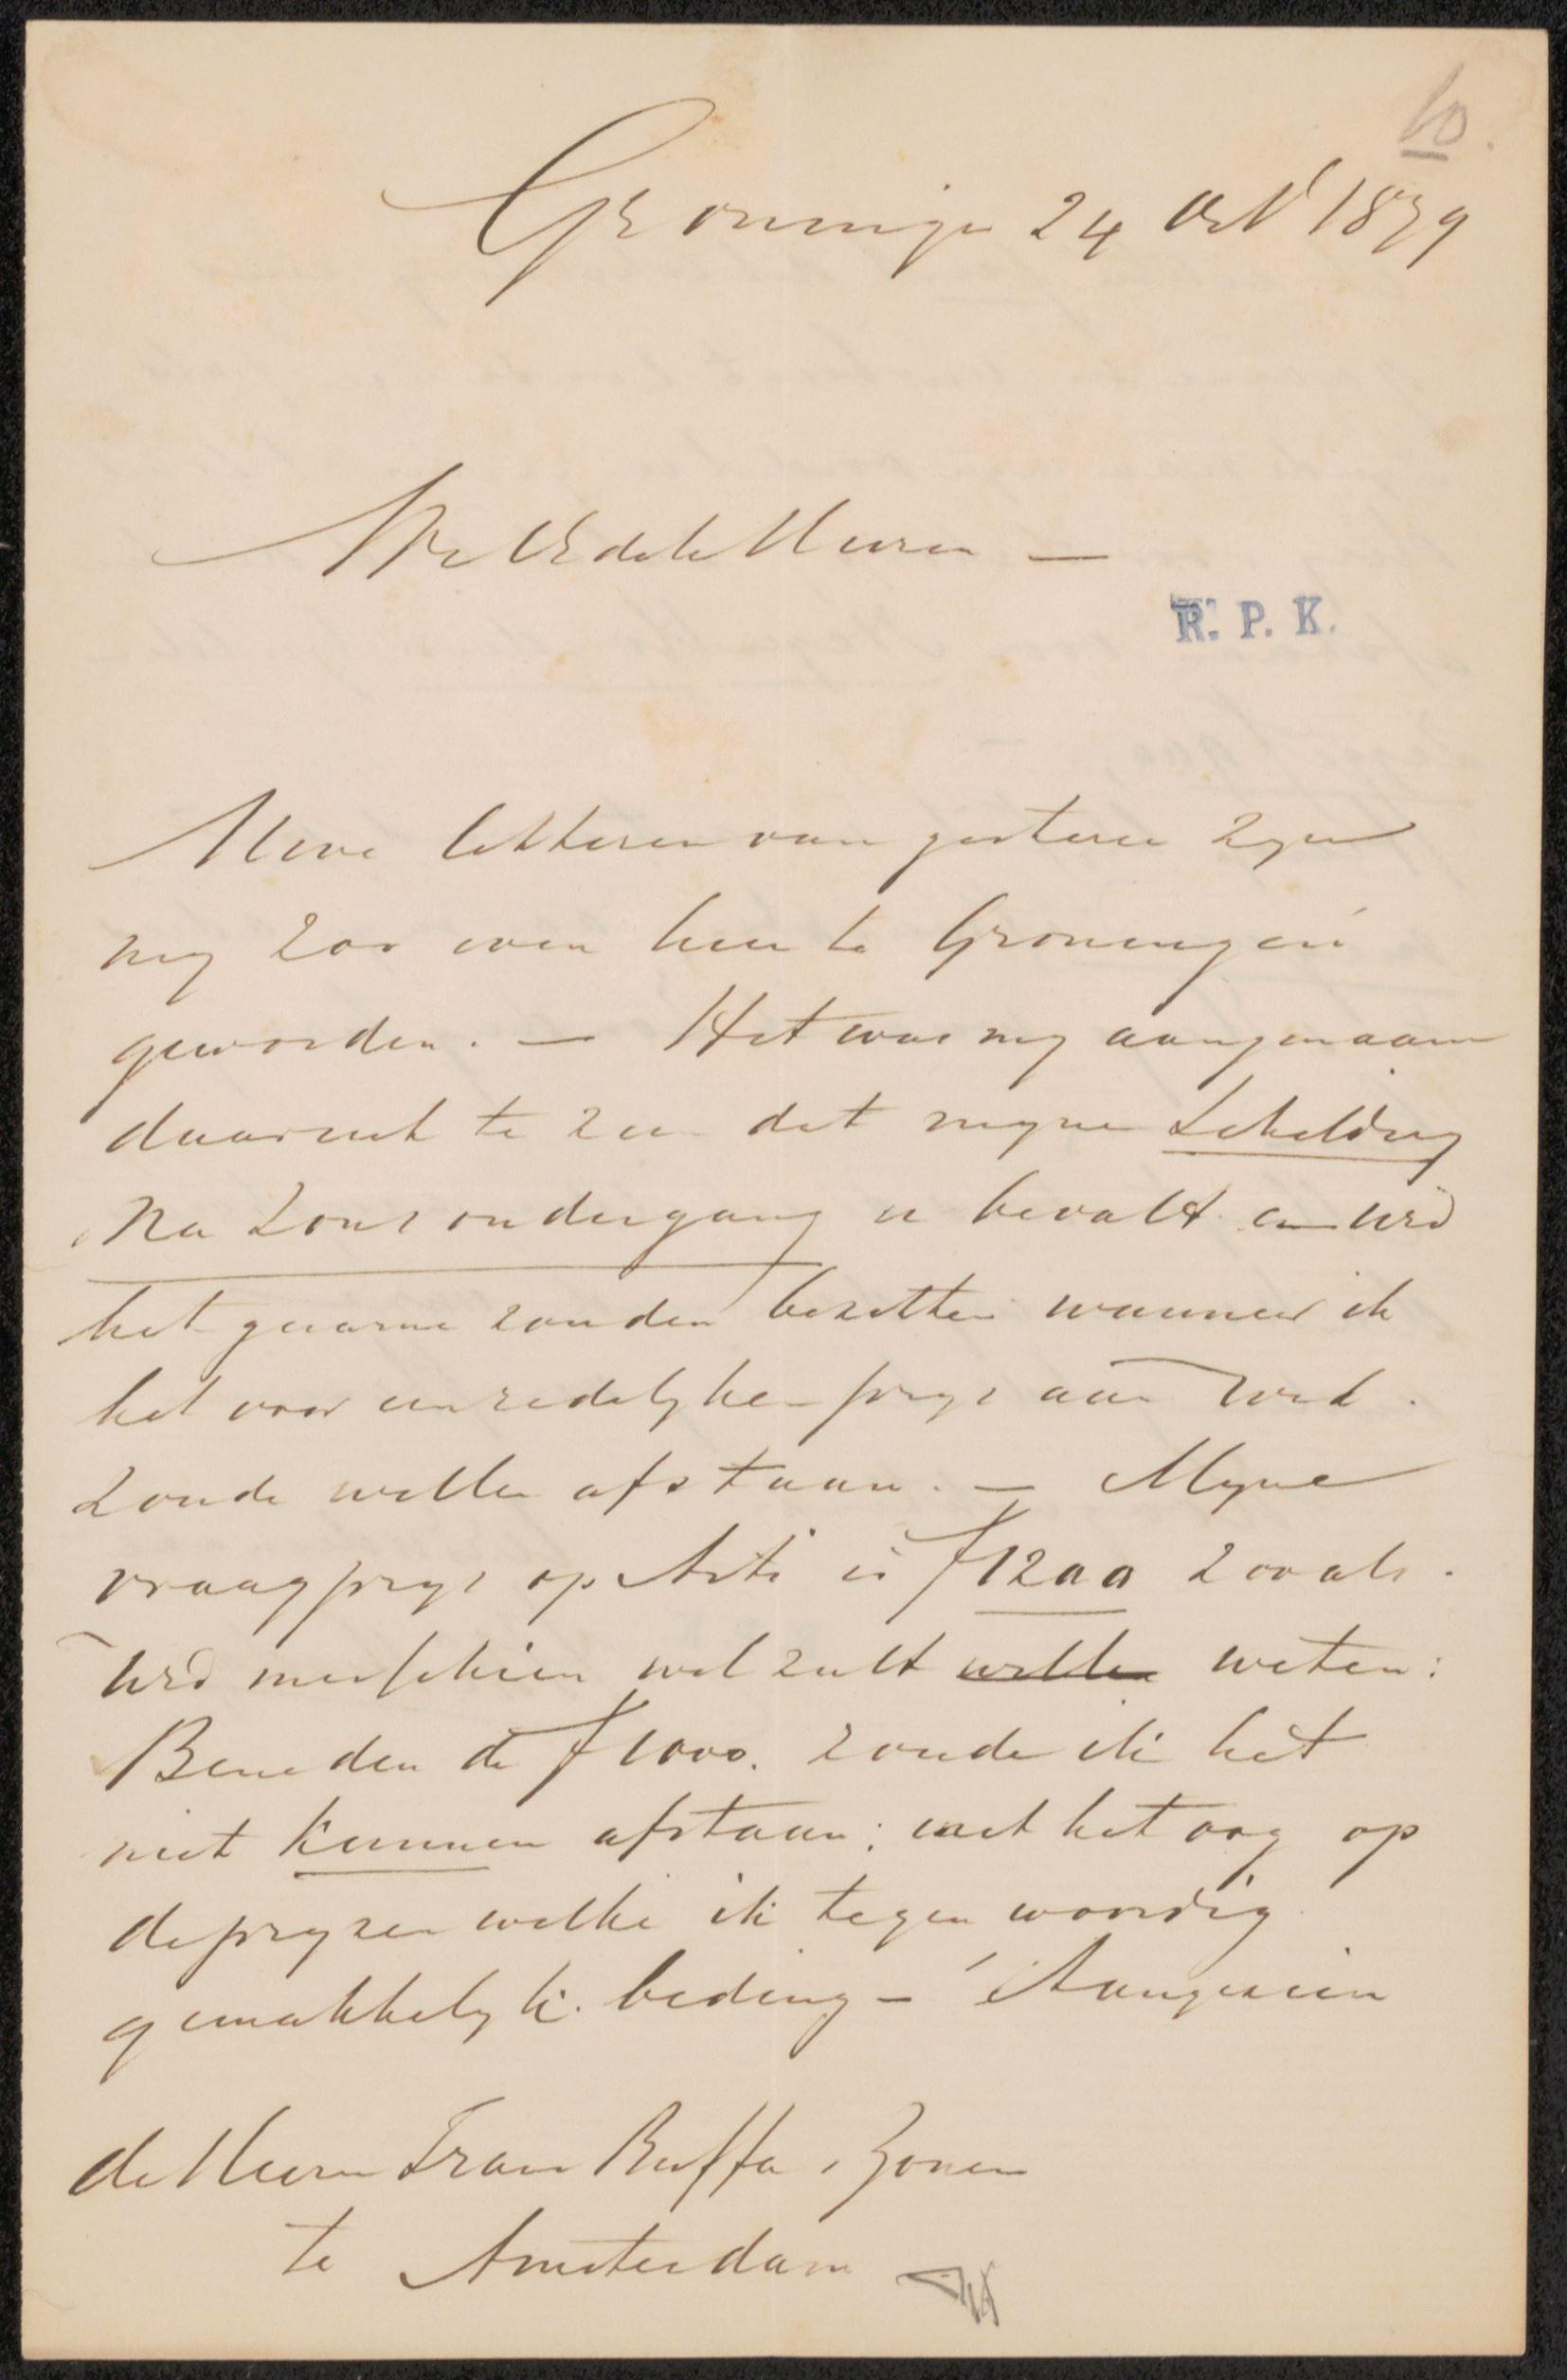 10.
Groningen 24 Oct 1879
WelEdele Heeren —
R. P. K.
Uwe letteren van gisteren zyn
my zoo even hier te Groningen
geworden. — Het was my aangenaam
daaruit te zien dat myne Schildery
Na Zons ondergang u bevalt en UEd
het gaarne zouden bezitten wanneer ik
het voor een redelyken prys aan UEd.
zoude willen afstaan. — Myne
vraagprys op Arti is f 1200 zooals.
UEd misschien wel zult willen weten:
Beneden de f 1000. zoude ik het
niet kunnen afstaan; met het oog op
de pryzen welke ik tegenwoordig
gemakkelyk beding — Aangezien
de Heeren Frans Buffa & Zonen
te Amsterdam